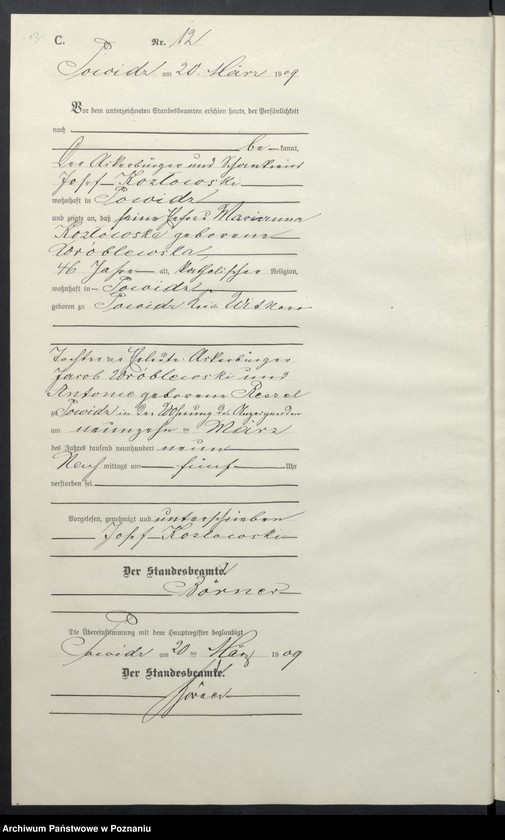 C. Nr. 12
Powidz am 20. März 1909
Vor dem unterzeichneten Standesbeamten erschien heute, der Persönlichkeit
nach
be kannt,
Der Ackerbürger und Schankwirt
Josef Kozlowski
wohnhaft in Powidz
und zeigte an, daß seine Ehefrau Marianna
Kozlowska geborene
Wróblewska,
46 Jahre alt, katholischer Religion,
wohnhaft in Powidz
geboren zu Powidz Kreis Witkowo
Tochter der Eheleute Ackerbürger
Jacob Wróblewski und
Antonie geborene
zu Powidz in der Wohnung des Anzeigenden
am neunzehn ten März
des Jahres tausend neunhundert neun
Nach mittags um fünf Uhr
verstorben sei
Vorgelesen, genehmigt und unterschrieben
Josef Kozlowski
Der Standesbeamte.
Börner
Die Übereinstimmung mit dem Hauptregister beglaubigt
Powidz am 20 ten März 1909
Der Standesbeamte.
Börner
Archiwum Państwowe w Poznaniu